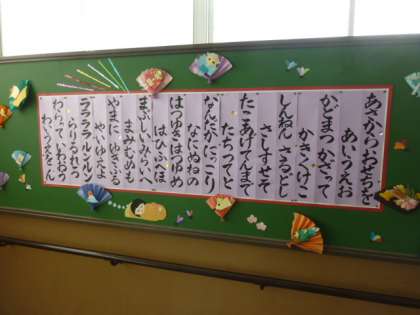 あさからおせちを
あいうえお
かどまつ かざって
かきくけこ
しんねん さるどし
さしすせそ
たこあげてんまで
たちつてと
なんだかにっこり
なにぬねの
はつゆきはゆめ
はひふへほ
まぶしいみらいへ
まみむめも
やまに ゆきふる
やいゆえよ
ラララルンルン
らりるれろ
わらっていわおう
わいうえをん